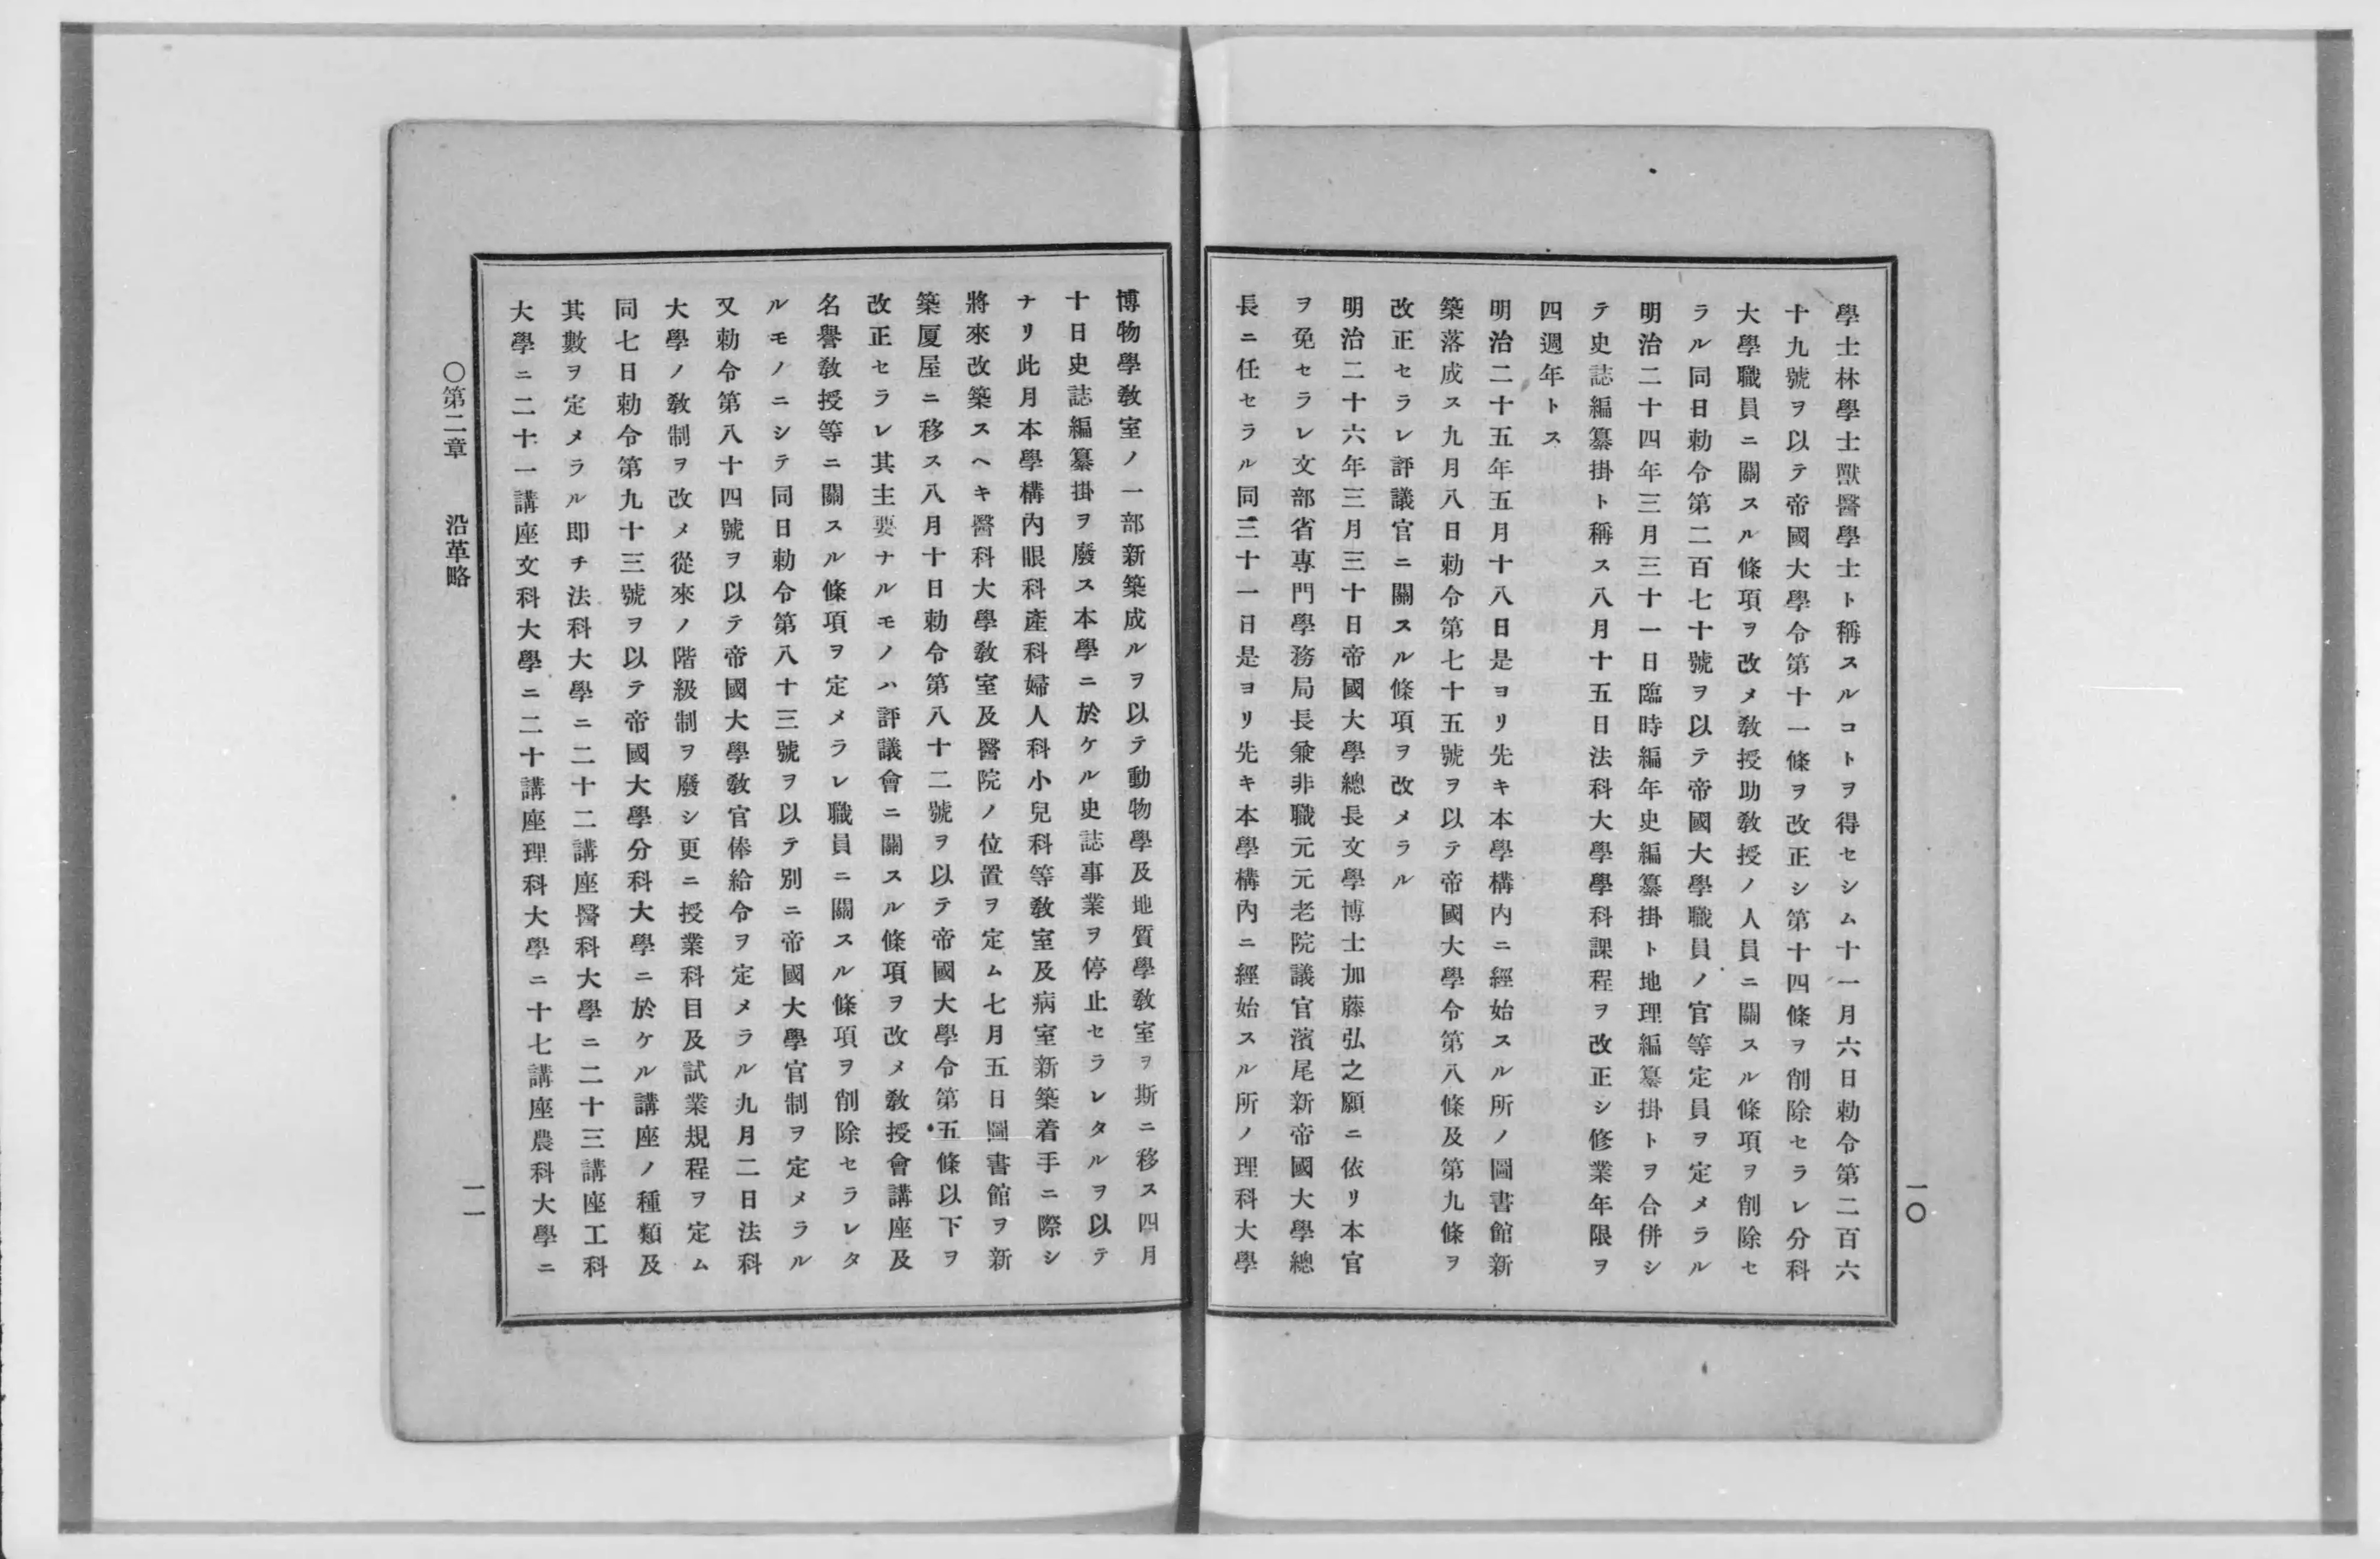 學士林學士獸醫學士ト稱スルコトヲ得セシム十一月六日勅令第二百六
十九號ヲ以テ帝國大學令第十一條ヲ改正シ第十四條ヲ削除セラレ分科
大學職員ニ關スル條項ヲ改メ敎授助敎授ノ人員ニ關スル條項ヲ削除セ
ラル同日勅令第二百七十號ヲ以テ帝國大學職員ノ官等定員ヲ定メラル
明治二十四年三月三十一日臨時編年史編纂掛ト地理編纂掛トヲ合併シ
テ史誌編纂掛ト稱ス八月十五日法科大學學科課程ヲ改正シ修業年限ヲ
四週年トス
明治二十五年五月十八日是ヨリ先キ本學構内ニ經始スル所ノ圖書館新
築落成ス九月八日勅令第七十五號ヲ以テ帝國大學令第八條及第九條ヲ
改正セラレ評議官ニ關スル條項ヲ改メラル
明治二十六年三月三十日帝國大學總長文學博士加藤弘之願ニ依リ本官
ヲ免セラレ文部省專門學務局長兼非職元元老院議官濱尾新帝國大學總
長ニ任セラル同三十一日是ヨリ先キ本學構内ニ經始スル所ノ理科大學
一〇
博物學敎室ノ一部新築成ルヲ以テ動物學及地質學敎室ヲ斯ニ移ス四月
十日史誌編纂掛ヲ廢ス本學ニ於ケル史誌事業ヲ停止セラレタルヲ以テ
ナリ此月本學構内眼科產科婦人科小兒科等敎室及病室新築着手ニ際シ
將來改築スヘキ醫科大學敎室及醫院ノ位置ヲ定ム七月五日圖書館ヲ新
築厦屋ニ移ス八月十日勅令第八十二號ヲ以テ帝國大學令第五條以下ヲ
改正セラレ其主要ナルモノハ評議會ニ關スル條項ヲ改メ敎授會講座及
名譽敎授等ニ關スル條項ヲ定メラレ職員ニ關スル條項ヲ削除セラレタ
ルモノニシテ同日勅令第八十三號ヲ以テ別ニ帝國大學官制ヲ定メラル
又勅令第八十四號ヲ以テ帝國大學敎官俸給令ヲ定メラル九月二日法科
大學ノ敎制ヲ改メ從來ノ階級制ヲ廢シ更ニ授業科目及試業規程ヲ定ム
同七日勅令第九十三號ヲ以テ帝國大學分科大學ニ於ケル講座ノ種類及
其數ヲ定メラル即チ法科大學ニ二十二講座醫科大學ニ二十三講座工科
大學ニ二十一講座文科大學ニ二十講座理科大學ニ十七講座農科大學ニ
〇第二章 沿革略
一一